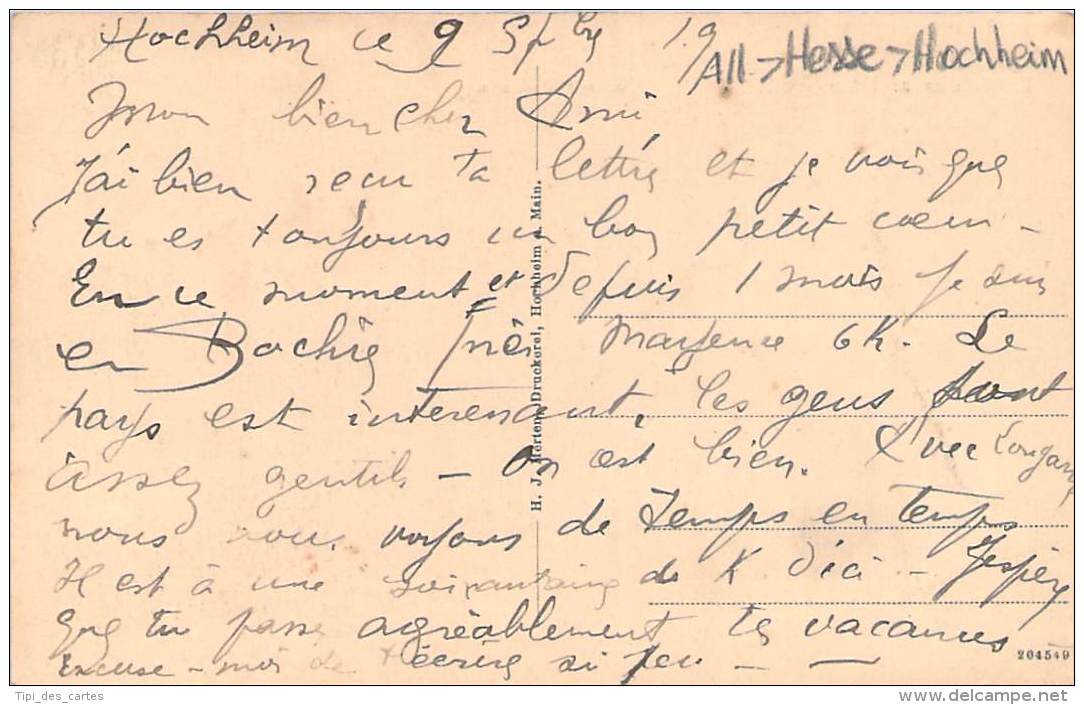 Hochheim ce 9 Spbre 19
All > Hesse > Hochheim
mon bien cher Ami
J'ai bien reçu ta lettre et je vois que
tu es toujours un bon petit coeur -
En ce moment et depuis 1 mois je suis
en Bochie près Mayence 6K. Le
pays est interessant, les gens sont
assez gentils - On est bien. Avec
nous nous voyons de temps en temps
Il est à une soixantaine de K d'ici - J'espère
que tu passes agréablement tes vacances
Excuse-moi de t'écrire si peu -
H. J. Mertens, Druckerei, Hochheim a. Main.
204549
Tipi_des_cartes
www.delcampe.net